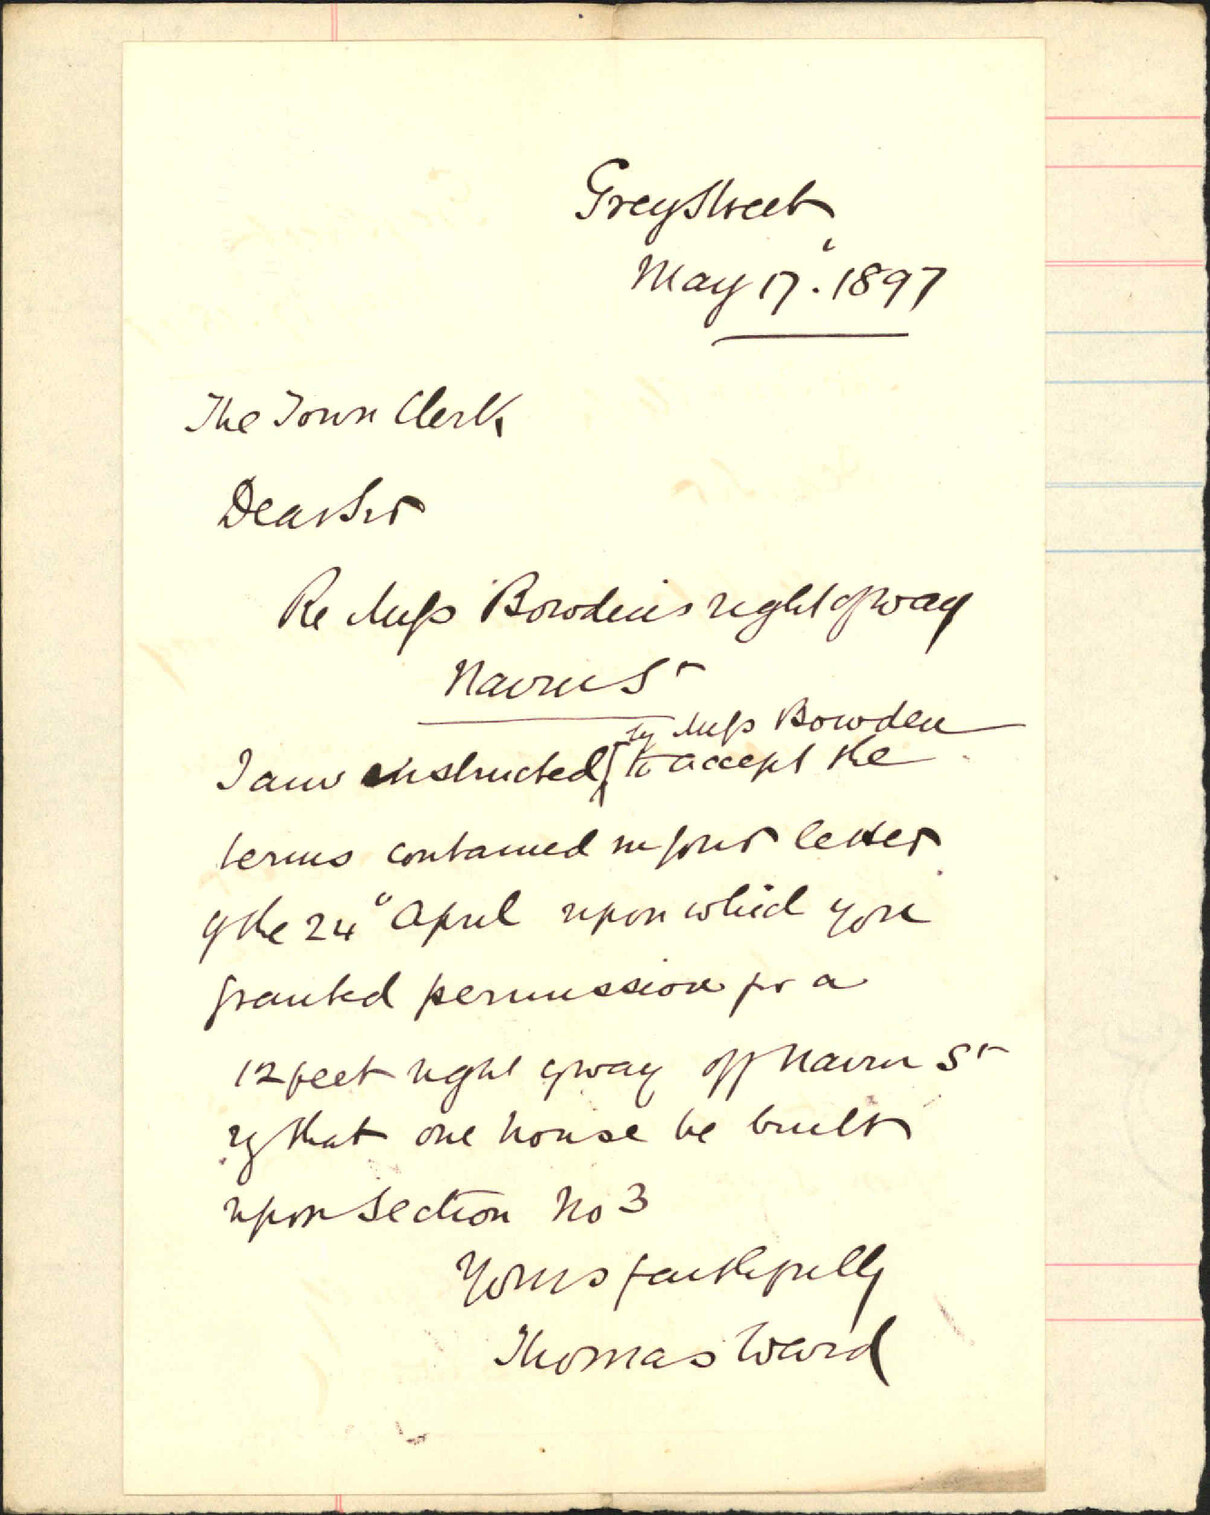 Grey Street
May 17" 1897
The Town Clerk
Dear Sir
Re Miss Bowden's right of way
Nairn St
by Miss Bowden
I am instructed to accept the
terms contained in your letter
of the 24" April upon which you
granted permission for a
12 feet right of way off Nairn St
that one house be built
upon Section No 3
Yours faithfully
Thomas Ward